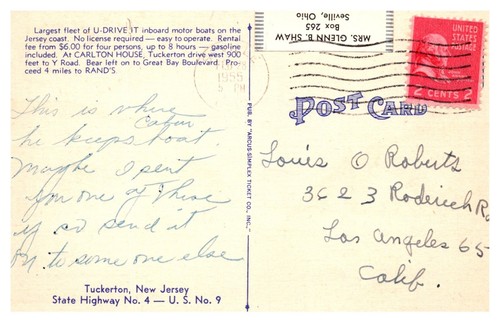 Largest fleet of U-DRIVE-IT inboard motor boats on the
Jersey coast. No license required — easy to operate. Rental
fee from $6.00 for four persons, up to 8 hours — gasoline
included. At CARLTON HOUSE, Tuckerton drive west 900
feet to Y Road. Bear left on to Great Bay Boulevard. Pro-
ceed 4 miles to RAND'S
This is where
he keeps boat.
Maybe I sent
for one of these
if so send it
on to some one else
Tuckerton, New Jersey
State Highway No. 4 — U. S. No. 9
PUB. BY "ARGUS-SIMPLEX TICKET CO., INC."
1955
PM
MRS. GLENN B. SHAW
Box 265
Seville, Ohio
UNITED STATES
POSTAGE
2 CENTS 2
POST CARD
Louis O Roberts
3623 Roderick Rd
Los Angeles 65
Calif.